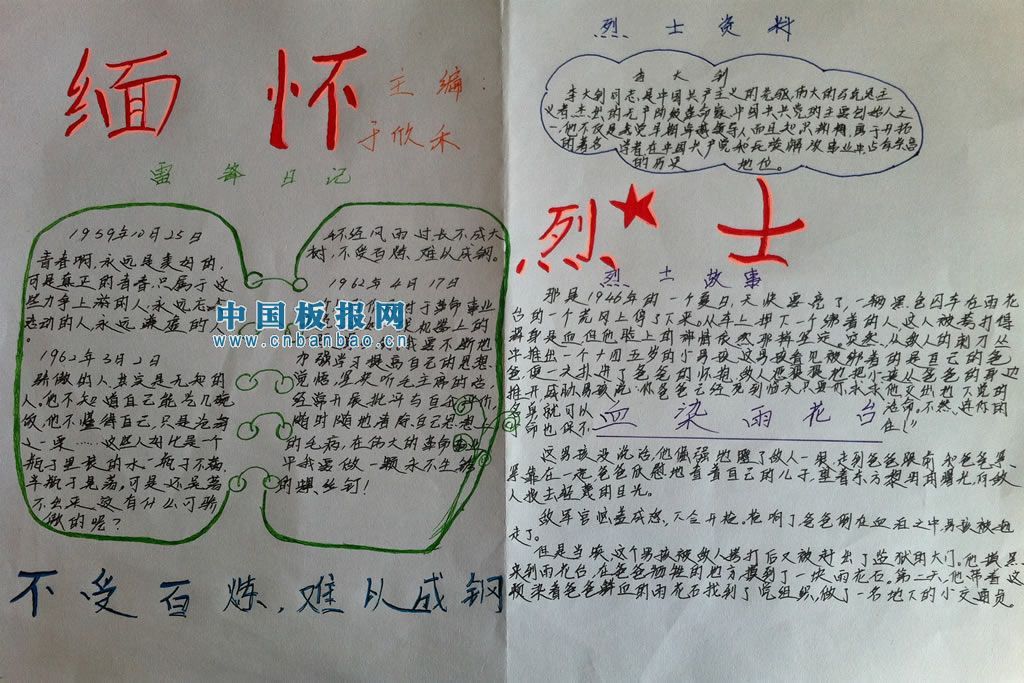 缅怀
主编:
于欣禾
雷锋日记
1959年10月25日
青春啊,永远是美好的,
可是真正的青春,只属于这
些力争上游的人,永远忘我
劳动的人,永远谦虚的人
1962年3月2日
骄傲的人,其实是无知的
人。他不知道自己能吃几碗
饭,他不懂得自己只是沧海
一粟……这些人好比是一个
瓶子里装的水一瓶子不满,
半瓶子晃荡。可是还是晃
不出来。这有什么可骄
傲的呢?
不经风雨,长不成大
树,不受百炼,难以成钢。
1962年4月17日
对于革命事业
机器上的
我要不断地
加强学习提高自己的思想
觉悟,坚决听毛主席的话,
经常开展批评与自我评价,
随时随地清除自己思想上
的毛病,在伟大的革命事业
中我要做一颗永不生锈
的螺丝钉!
不受百炼,难以成钢
中国板报网
www.cnbanbao.cn
烈士资料
李大钊
李大钊同志是中国共产主义的先驱,伟大的马克思主
义者,杰出的无产阶级革命家,中国共产党的主要创始人之
一,他不仅是我党早期卓越领导人,而且是
的著名学者在中国共产党和民族解放事业中占有崇高
的历史地位。
烈★士
烈士故事
那是1946年的一个夏日,天快要亮了,一辆黑色囚车在雨花
台的一个荒岗上停了下来。从车上押下一个绑着的人,这人被敌打得
满身是血,但他脸上的神情依然那样坚定。突然,从敌人的刺刀丛
中推出一个十四五岁的小男孩,这男孩看见被绑着的是自己的爸
爸,便一头扑进了爸爸的怀抱,敌人恶狠狠地把小孩从爸爸的身边
推开,威胁男孩说:你爸爸已经死到临头,只要你
血染雨花台
这男孩没说话,他倔强地瞪了敌人一眼,走到爸爸跟前和爸爸紧
紧靠在一起,爸爸欣慰地看着自己的儿子,望着东方
人投去轻蔑的目光。
敌军官恼羞成怒,下令开枪,枪响了爸爸倒在血泊之中男孩被赶
走了。
但是当晚,这个男孩被敌人毒打后又被赶出了监狱的大门。他摸黑
来到雨花台,在爸爸牺牲的地方摸到了一块雨花石。第二天,他带着这
颗染着爸爸鲜血的雨花石找到了党组织,做了一名地下的小交通员。